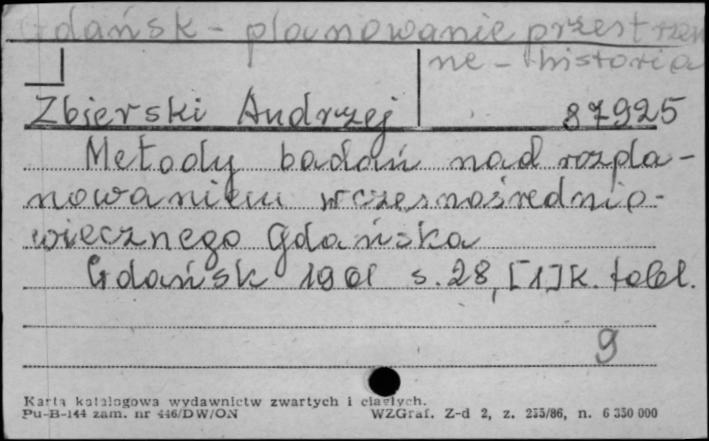 Gdańsk - planowanie przestrzen
ne - historia
Zbierski Andrzej 87925
Metody badań nad rozpla-
nowaniem wczesnośrednio-
wiecznego Gdańska
Gdańsk 1961 s. 28, [1] k. tabl.
9
Karta katalogowa wydawnictw zwartych i ciągłych.
Pu-B-144 zam. nr 446/DW/ON WZGraf. Z-d 2, z. 255/86, n. 6 350 000